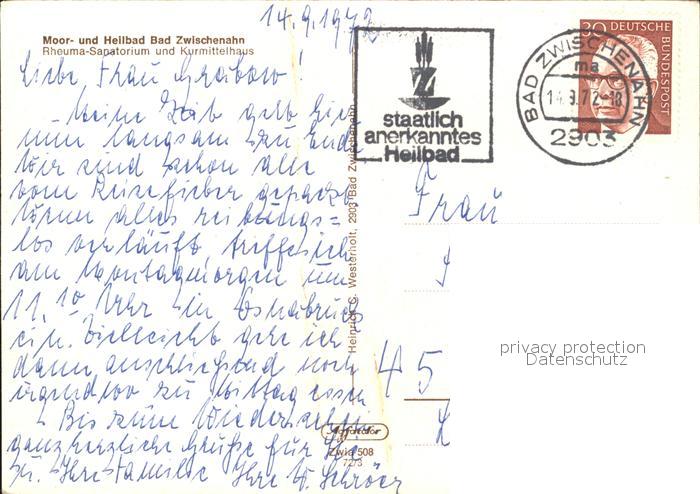 14.9.1972
Moor- und Heilbad Bad Zwischenahn
Rheuma-Sanatorium und Kurmittelhaus
Liebe Frau Grabow!
Meine Zeit geht hier
nun langsam zu Ende
wir sind schon alle
vom Reisefieber gepackt
wenn alles reibungs=
los verläuft, treffe ich
am Montagmorgen um
11.10 Uhr in Osnabrück
ein. Vielleicht gehe ich
dann anschließend noch
irgendwo zu Mittag essen
Bis zum Wiedersehen
ganz herzliche Grüße für Sie
u. Ihre Familie Ihre W. Schröer
Heinrich G. Westerholt, 2903 Bad Zwischenahn
Zwia 508
72/3
staatlich
anerkanntes
Heilbad
BAD ZWISCHENAHN
ma
14.9.72-18
2903
30 DEUTSCHE
BUNDESPOST
Frau
45
privacy protection
Datenschutz